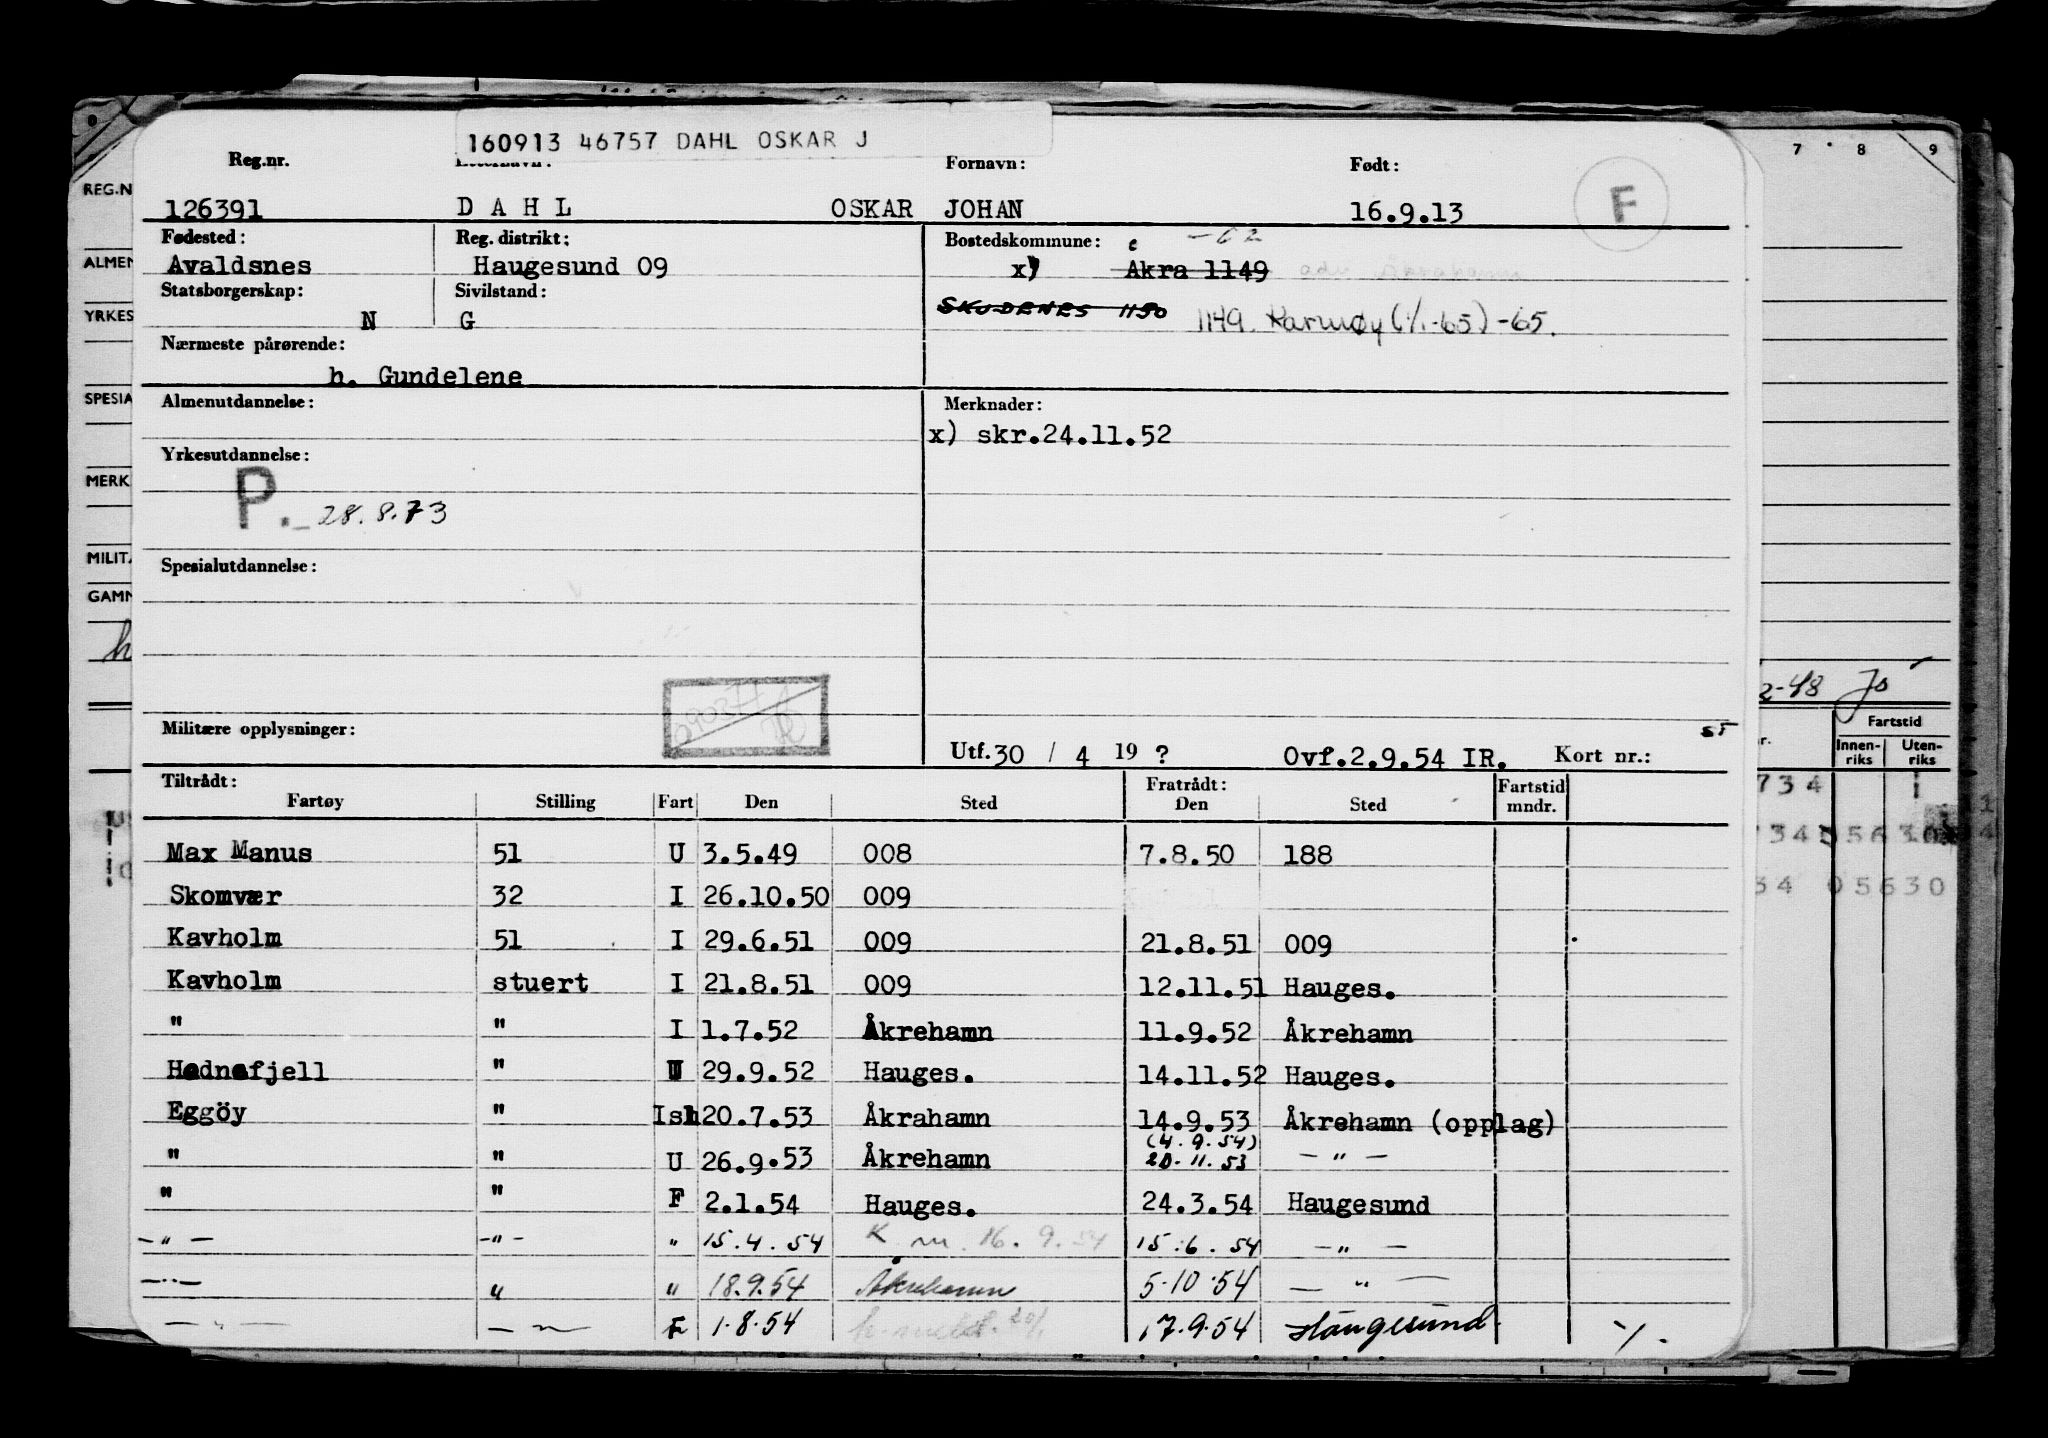 160913 46757 DAHL OSKAR J
Reg.nr. Fornavn: Født: F
126391 DAHL OSKAR JOHAN 16.9.13
Fødested: Reg. distrikt: Bostedskommune: -62
Avaldsnes Haugesund 09 x) Akra 1149
Statsborgerskap: Sivilstand: SKUDENES 1150
N G 1149. Karmøy (1/1-65) -65.
Nærmeste pårørende:
h. Gundelene
Almenutdannelse: Merknader:
x) skr.24.11.52
Yrkesutdannelse:
P. 28.8.73
Spesialutdannelse:
Militære opplysninger:
Utf. 30 / 4 19 ? Ovf.2.9.54 IR. Kort nr.:
Tiltrådt: Fratrådt: Fartstid
Fartøy Stilling Fart Den Sted Den Sted mndr.
Max Manus 51 U 3.5.49 008 7.8.50 188
Skomvær 32 I 26.10.50 009
Kavholm 51 I 29.6.51 009 21.8.51 009
Kavholm stuert I 21.8.51 009 12.11.51 Hauges.
" " I 1.7.52 Åkrehamn 11.9.52 Åkrehamn
Hednefjell " U 29.9.52 Hauges. 14.11.52 Hauges.
Eggöy " Isl 20.7.53 Åkrahamn 14.9.53 Åkrehamn (opplag)
(4.9.54)
" " U 26.9.53 Åkrehamn 20.11.53 — " —
" " F 2.1.54 Hauges. 24.3.54 Haugesund
— " — — " — " 15.4.54 K.m. 16.9.54 15.6.54 — " —
— " — " " 18.9.54 Åkrehamn 5.10.54 — " —
— " — — " — F 1.8.54 17.9.54 Haugesund.
REG.N
ALMEN
YRKES
SPESIA
MERK
MILITÆ
GAMM
7 8 9
2-48
Fartstid
Innen-riks Uten-riks
734
734 05630
34 05630